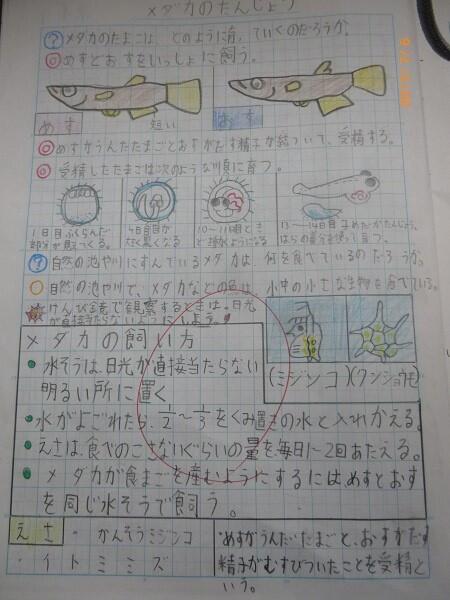 メダカのたんじょう
? メダカのたまごは、どのように育っていくのだろうか。
◎めすとおすをいっしょに飼う。
めす 短い おす
◎めすがうんだたまごとおすがだす精子が結びついて、受精する。
◎受精したたまごは次のような順に育つ。
1日目ふくらんだ部分が見えてくる。
4日目目が大きく黒くなる
10〜11日目ときどき動くようになる
13〜14日目子めだかたんじょう。
はらの養分を使って育つ。
? 自然の池や川にすんでいるメダカは、何を食べているのだろうか。
自然の池や川で、メダカなどの魚は、水中の小さな生物を食べている。
けんび鏡で観察するときは、日光が直接当たらないようにしよう。!
(ミジンコ)(クンショウモ)
メダカの飼い方
・水そうは、日光が直接当たらない
明るい所に置く。
・水がよごれたら、1/2〜1/3をくみ置きの水と入れかえる。
・えさは、食べのこさないぐらいの量を毎日1〜2回あたえる。
・メダカが食まごを産むようにするには、めすとおす
を同じ水そうで飼う。
えさ・かんそうミジンコ
・イトミミズ
・めすがうんだたまごと、おすがだす
精子がむすびついたことを受精と
いう。